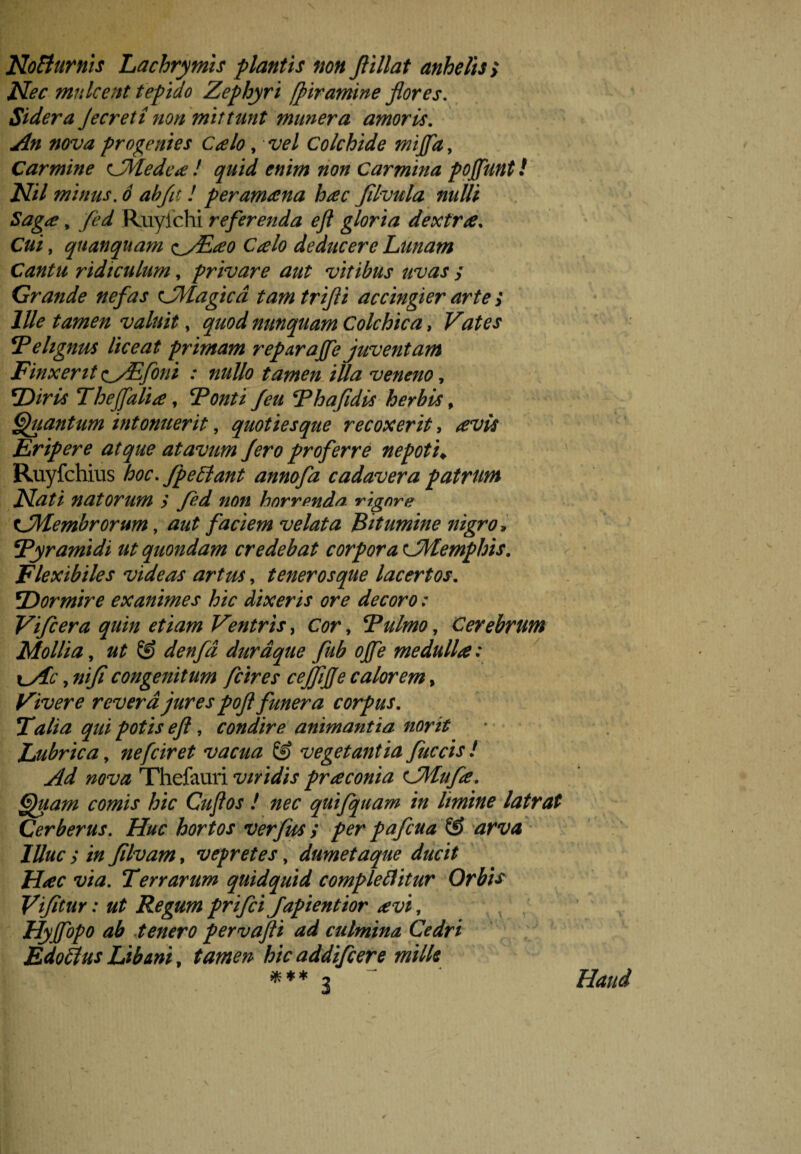 Nocturnis Lachrymis plantis non ſtillat anhelis;
Nec mulcent tepido Zephyri ſpiramine flores.
Sidera ſecreti non mittunt munera amoris.
An nova progenies Cælo, vel Colchide miſſa,
Carmine Medeæ! quid enim non Carmina poſſunt!
Nil minus. ô abſit! peramœna hæc ſilvula nulli
Sagæ, ſed Ruyſchi referenda eſt gloria dextræ.
Cui, quanquam Æœo Cælo deducere Lunam
Cantu ridiculum, privare aut vitibus uvas;
Grande nefas Magicâ tam triſti accingier arte;
Ille tamen valuit, quod nunquam Colchica, Vates
Pelignus liceat primam reparaſſe juventam
Finxerit Æſoni: nullo tamen illa veneno,
Diris Theſſaliæ, Ponti ſeu Phaſidis herbis,
Quantum intonuerit, quotiesque recoxerit, ævis
Eripere atque atavum ſero proferre nepoti.
Ruyſchius hoc. ſpectant annoſa cadavera patrum
Nati natorum; ſed non horrenda rigore
Membrorum, aut faciem velata Bitumine nigro,
Pyramidi ut quondam credebat corpora Memphis.
Flexibiles videas artus, tenerosque lacertos.
Dormire exanimes hic dixeris ore decoro:
Viſcera quin etiam Ventris, Cor, Pulmo, Cerebrum
Mollia, ut & denſâ durâque ſub oſſe medullæ:
Ac, niſi congenitum ſcires ceſſiſſe calorem,
Vivere reverâ jures poſt funera corpus.
Talia qui potis eſt, condire animantia norit
Lubrica, neſciret vacua & vegetantia ſuccis!
Ad nova Theſauri viridis præconia Muſæ.
Quam comis hic Cuſtos! nec quiſquam in limine latrat
Cerberus. Huc hortos verſus; per paſcua & arva
Illuc; in ſilvam, vepretes, dumetaque ducit
Hæc via. Terrarum quidquid complectitur Orbis
Viſitur: ut Regum priſci ſapientior ævi,
Hyſſopo ab tenero pervaſti ad culmina Cedri
Edoctus Libani, tamen hic addiſcere mille
*** 3 Haud